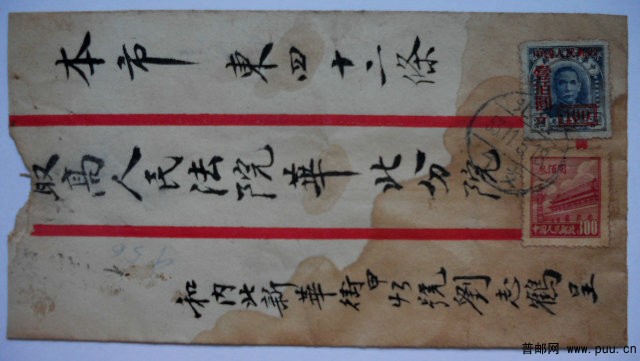 本市 東四十二條
最高人民法院華北分院
和内北新華街甲 號劉志鶴呈
叁佰圆
中國人民郵政
300
100
普邮网 www.puu.cn